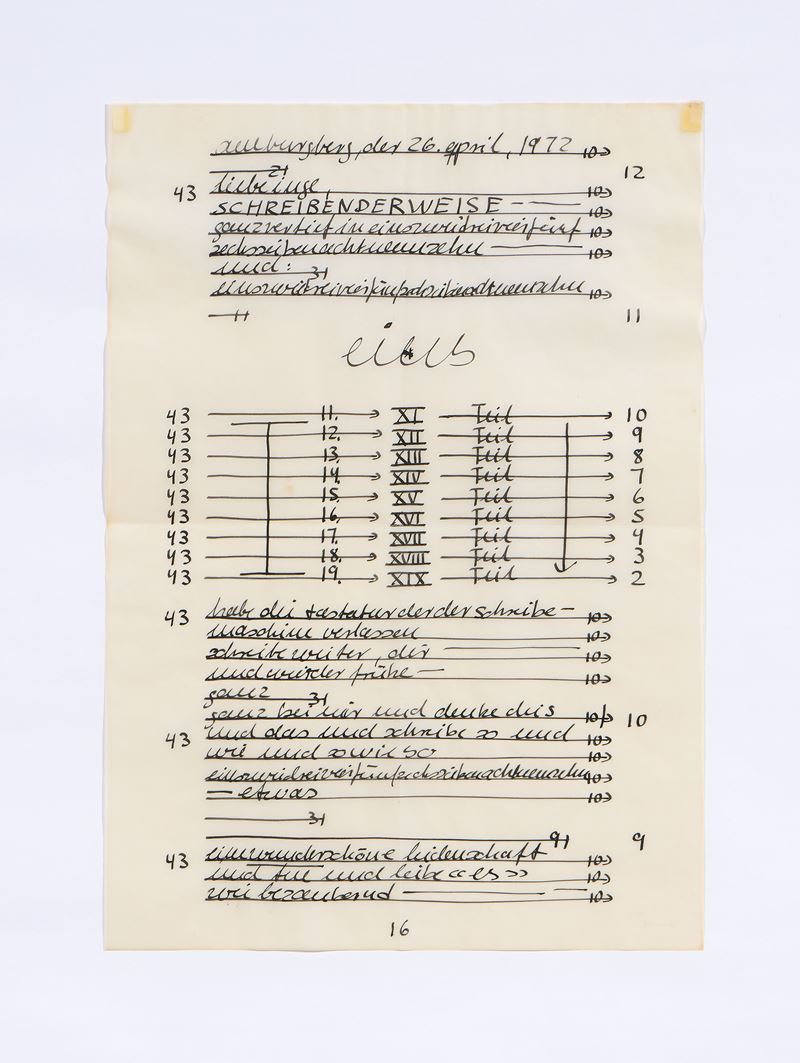 am burgberg, der 26. april, 1972 10→
21 12
43 liebe inge, 10→
SCHREIBENDERWEISE — 10→
ganz vertieft in einszweidreivierfünf 10→
sechssiebenachtneunzehn 10→
und: 31
einszweidreivierfünfsechssiebenachtneunzehn 10→
— 11 11
43 11. → XI Teil → 10
43 12. → XII Teil → 9
43 13. → XIII Teil → 8
43 14. → XIV Teil → 7
43 15. → XV Teil → 6
43 16. → XVI Teil → 5
43 17. → XVII Teil → 4
43 18. → XVIII Teil → 3
43 19. → XIX Teil → 2
43 habe die tastatur der der schreibe— 10→
maschine verlassen 10→
schreibe weiter, dir 10→
und wieder frühe — 10→
ganz 31
ganz bei mir und denke dies 10→ 10
43 und das und schreibe so und 10→
wie und sowieso 10→
einszweidreivierfünfsechssiebenachtneunzehn 10→
— etwas 10→
31
91 9
43 eine wunderschöne leidenschaft 10→
und tue und liebe «es» 10→
wie bezaubernd — 10→
16